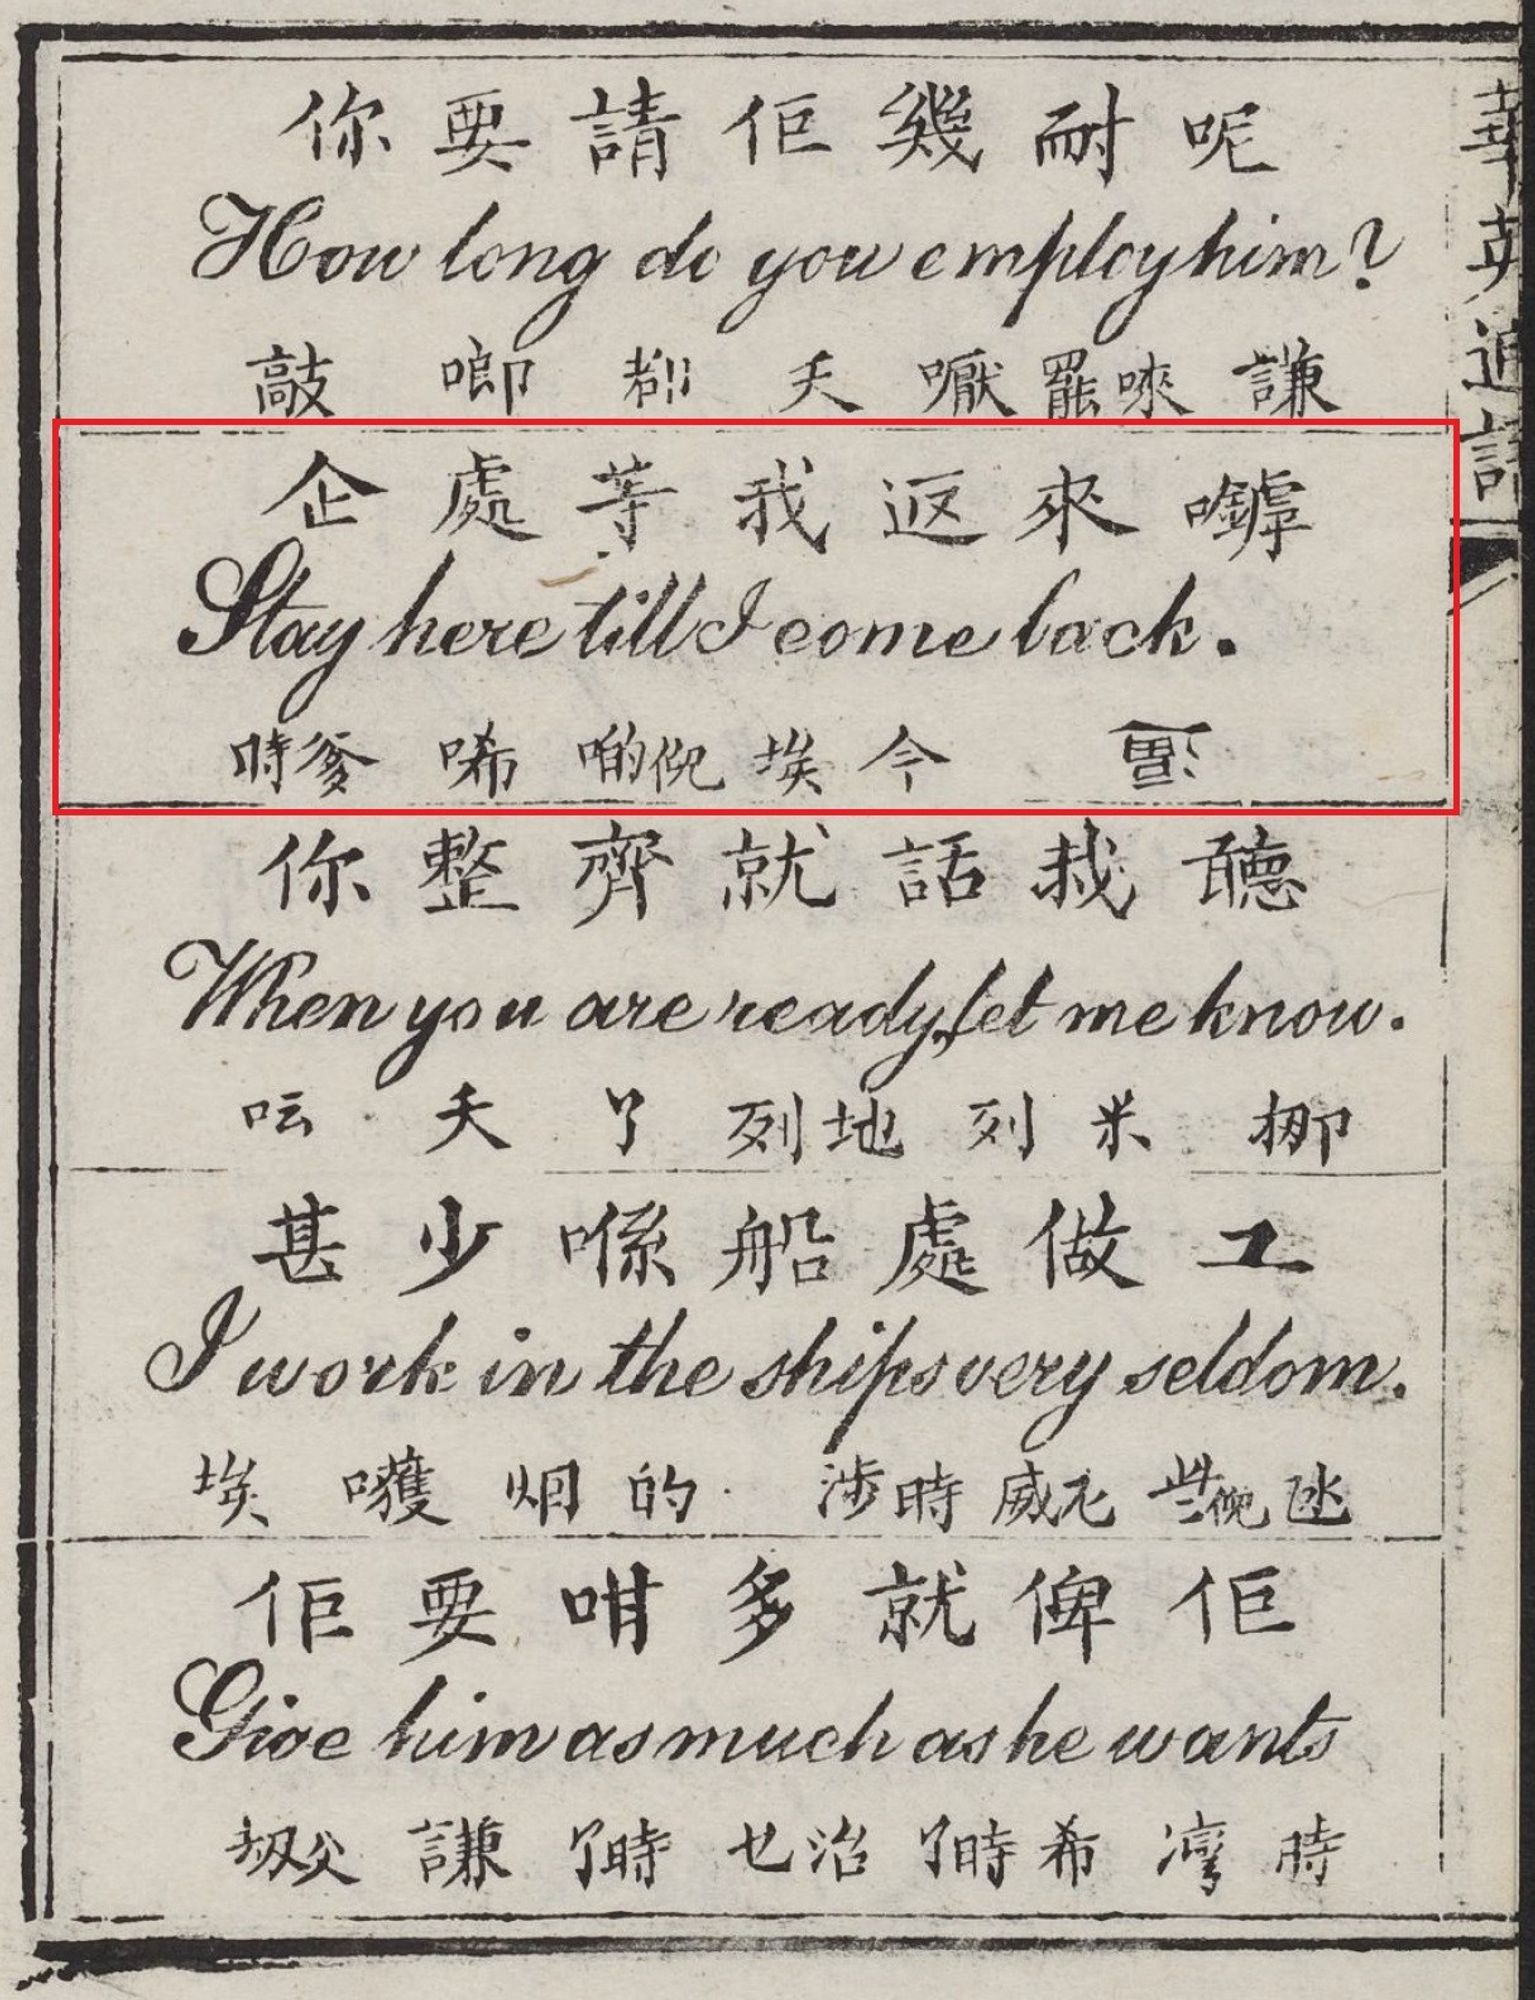 你要請佢幾耐呢
How long do you employ him?
敲 啷 都 夭 嚈 罷唻 謙
企處等我返來
Stay here till I come back.
時爹 唏 啲倪 埃 今
你整齊就話我聽
When you are ready, let me know.
呍 夭 列地 列 米 挪
甚少喺船處做工
I work in the ships very seldom.
埃 嚄 烟 的 涉時 威 些倪 氹
佢要咁多就俾佢
Give him as much as he wants
謙 時 乜治 時 希 灣 時
華英通語